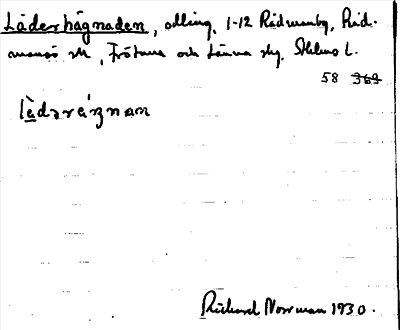 Läderhägnaden, odling, 1-12 Rådmanby, Råd-
mansö sn, Frötuna och Länna skg, Sthlms l.
58 369
lädəreŋnan
Richard Norrman 1930.